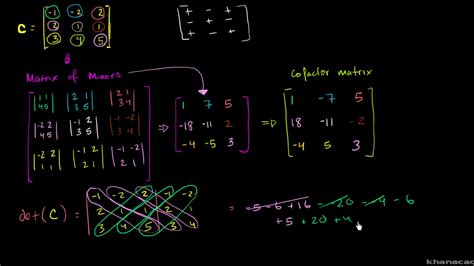 C = [ -1 -2 2
2 1 1
3 4 5 ]
+ - +
- + -
+ - +
Matrix of Minors
Cofactor matrix
|1 1| |2 1| |2 1|
|4 5| |3 5| |3 4|
|-2 2| |-1 2| |-1 -2|
|4 5| |3 5| |3 4|
|-2 2| |-1 2| |-1 -2|
|1 1| |2 1| |2 1|
⇒
1 7 5
-18 -11 2
-4 -5 3
⇒
1 -7 5
18 -11 -2
-4 5 3
det(C) =
-1 -2 2 -1 -2
2 1 1 2 1
3 4 5 3 4
= -5 -6 +16 -20 -4 -6
+5 +20 +4
khanacad